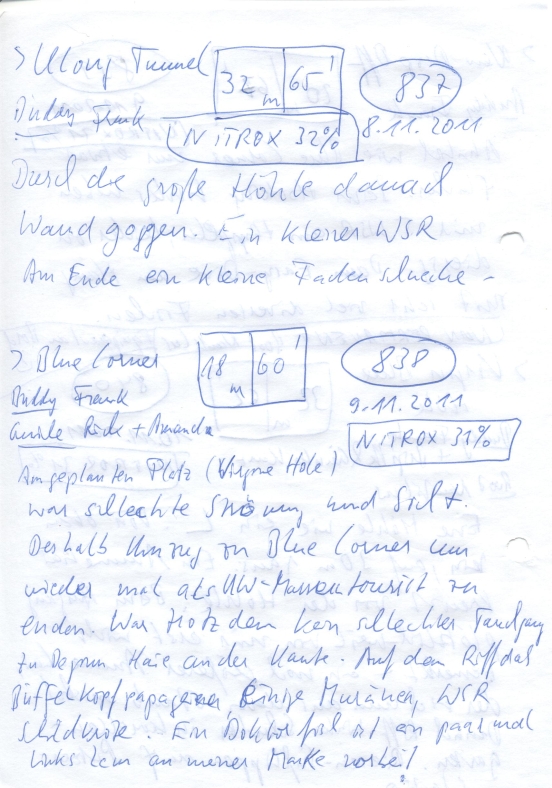 > Ulong Tunnel 32 m 65' 837
Buddy Frank NITROX 32% 8.11.2011
Durch die große Höhle danach
Wand Ein kleiner WSR
Am Ende ein kleine Fadenschnecke -
> Blue Corner 18 m 60' 838
Buddy Frank 9.11.2011
Guide Rick + Amanda NITROX 31%
Am geplanten Platz (Virgine Hole)
war schlechte Strömung und Sicht.
Deshalb Umzug zu Blue Corner um
wieder mal als UW-Massentourist zu
enden. War trotzdem kein schlechter Tauchgang
zu Beginn Haie an der Kante. Auf dem Riffdach
Büffelkopfpapageien, Einige Muränen, WSR
Schildkröte. Ein Doktorfisch ist ein paar mal
links 2cm an meiner Maske vorbei!